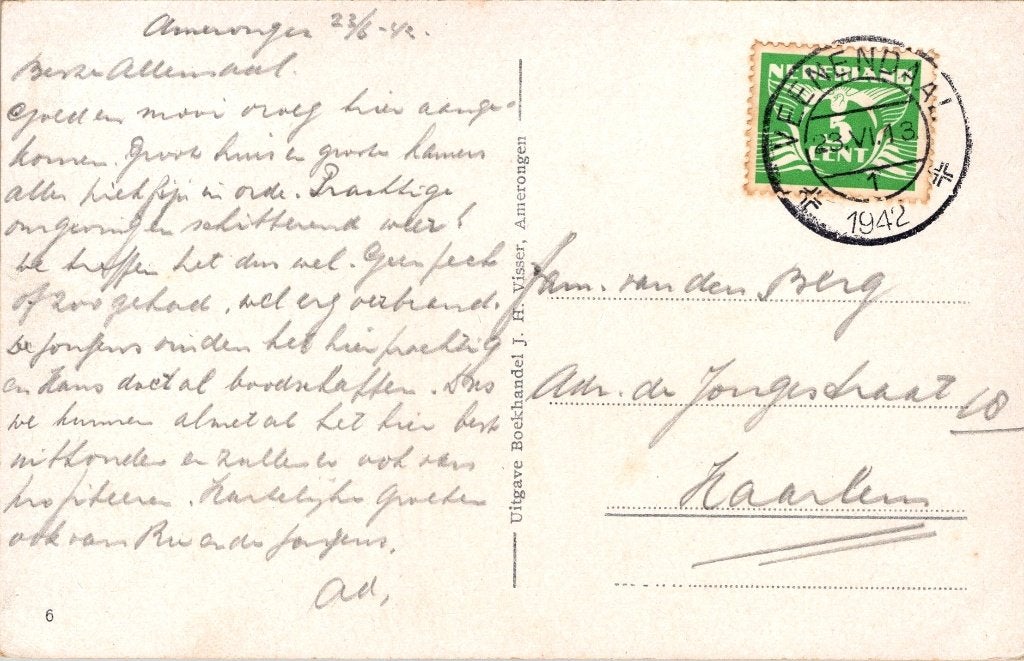 Amerongen 23/6-42.
Beste Allemaal.
Goed en mooi vroeg hier aange-
komen. Groot huis en groote kamers
alles piekfijn in orde. Prachtige
omgevingen schitterend weer!
We treffen het dus wel. Geen pech
of zoo gehad, wel erg verbrand.
De jongens vinden het hier prachtig
en Hans doet al boodschappen. Dus
we kunnen almetal het hier best
uithouden en zullen er ook van
profiteeren. Hartelijke Groeten
ook van Rie en de jongens.
Ad.
6
Uitgave Boekhandel J. H. Visser, Amerongen
NEDERLAND
5
CENT
VEENENDAAL
23.VI.13
1
1942
Fam. van den Berg
Adr. de Jongestraat 18
Haarlem